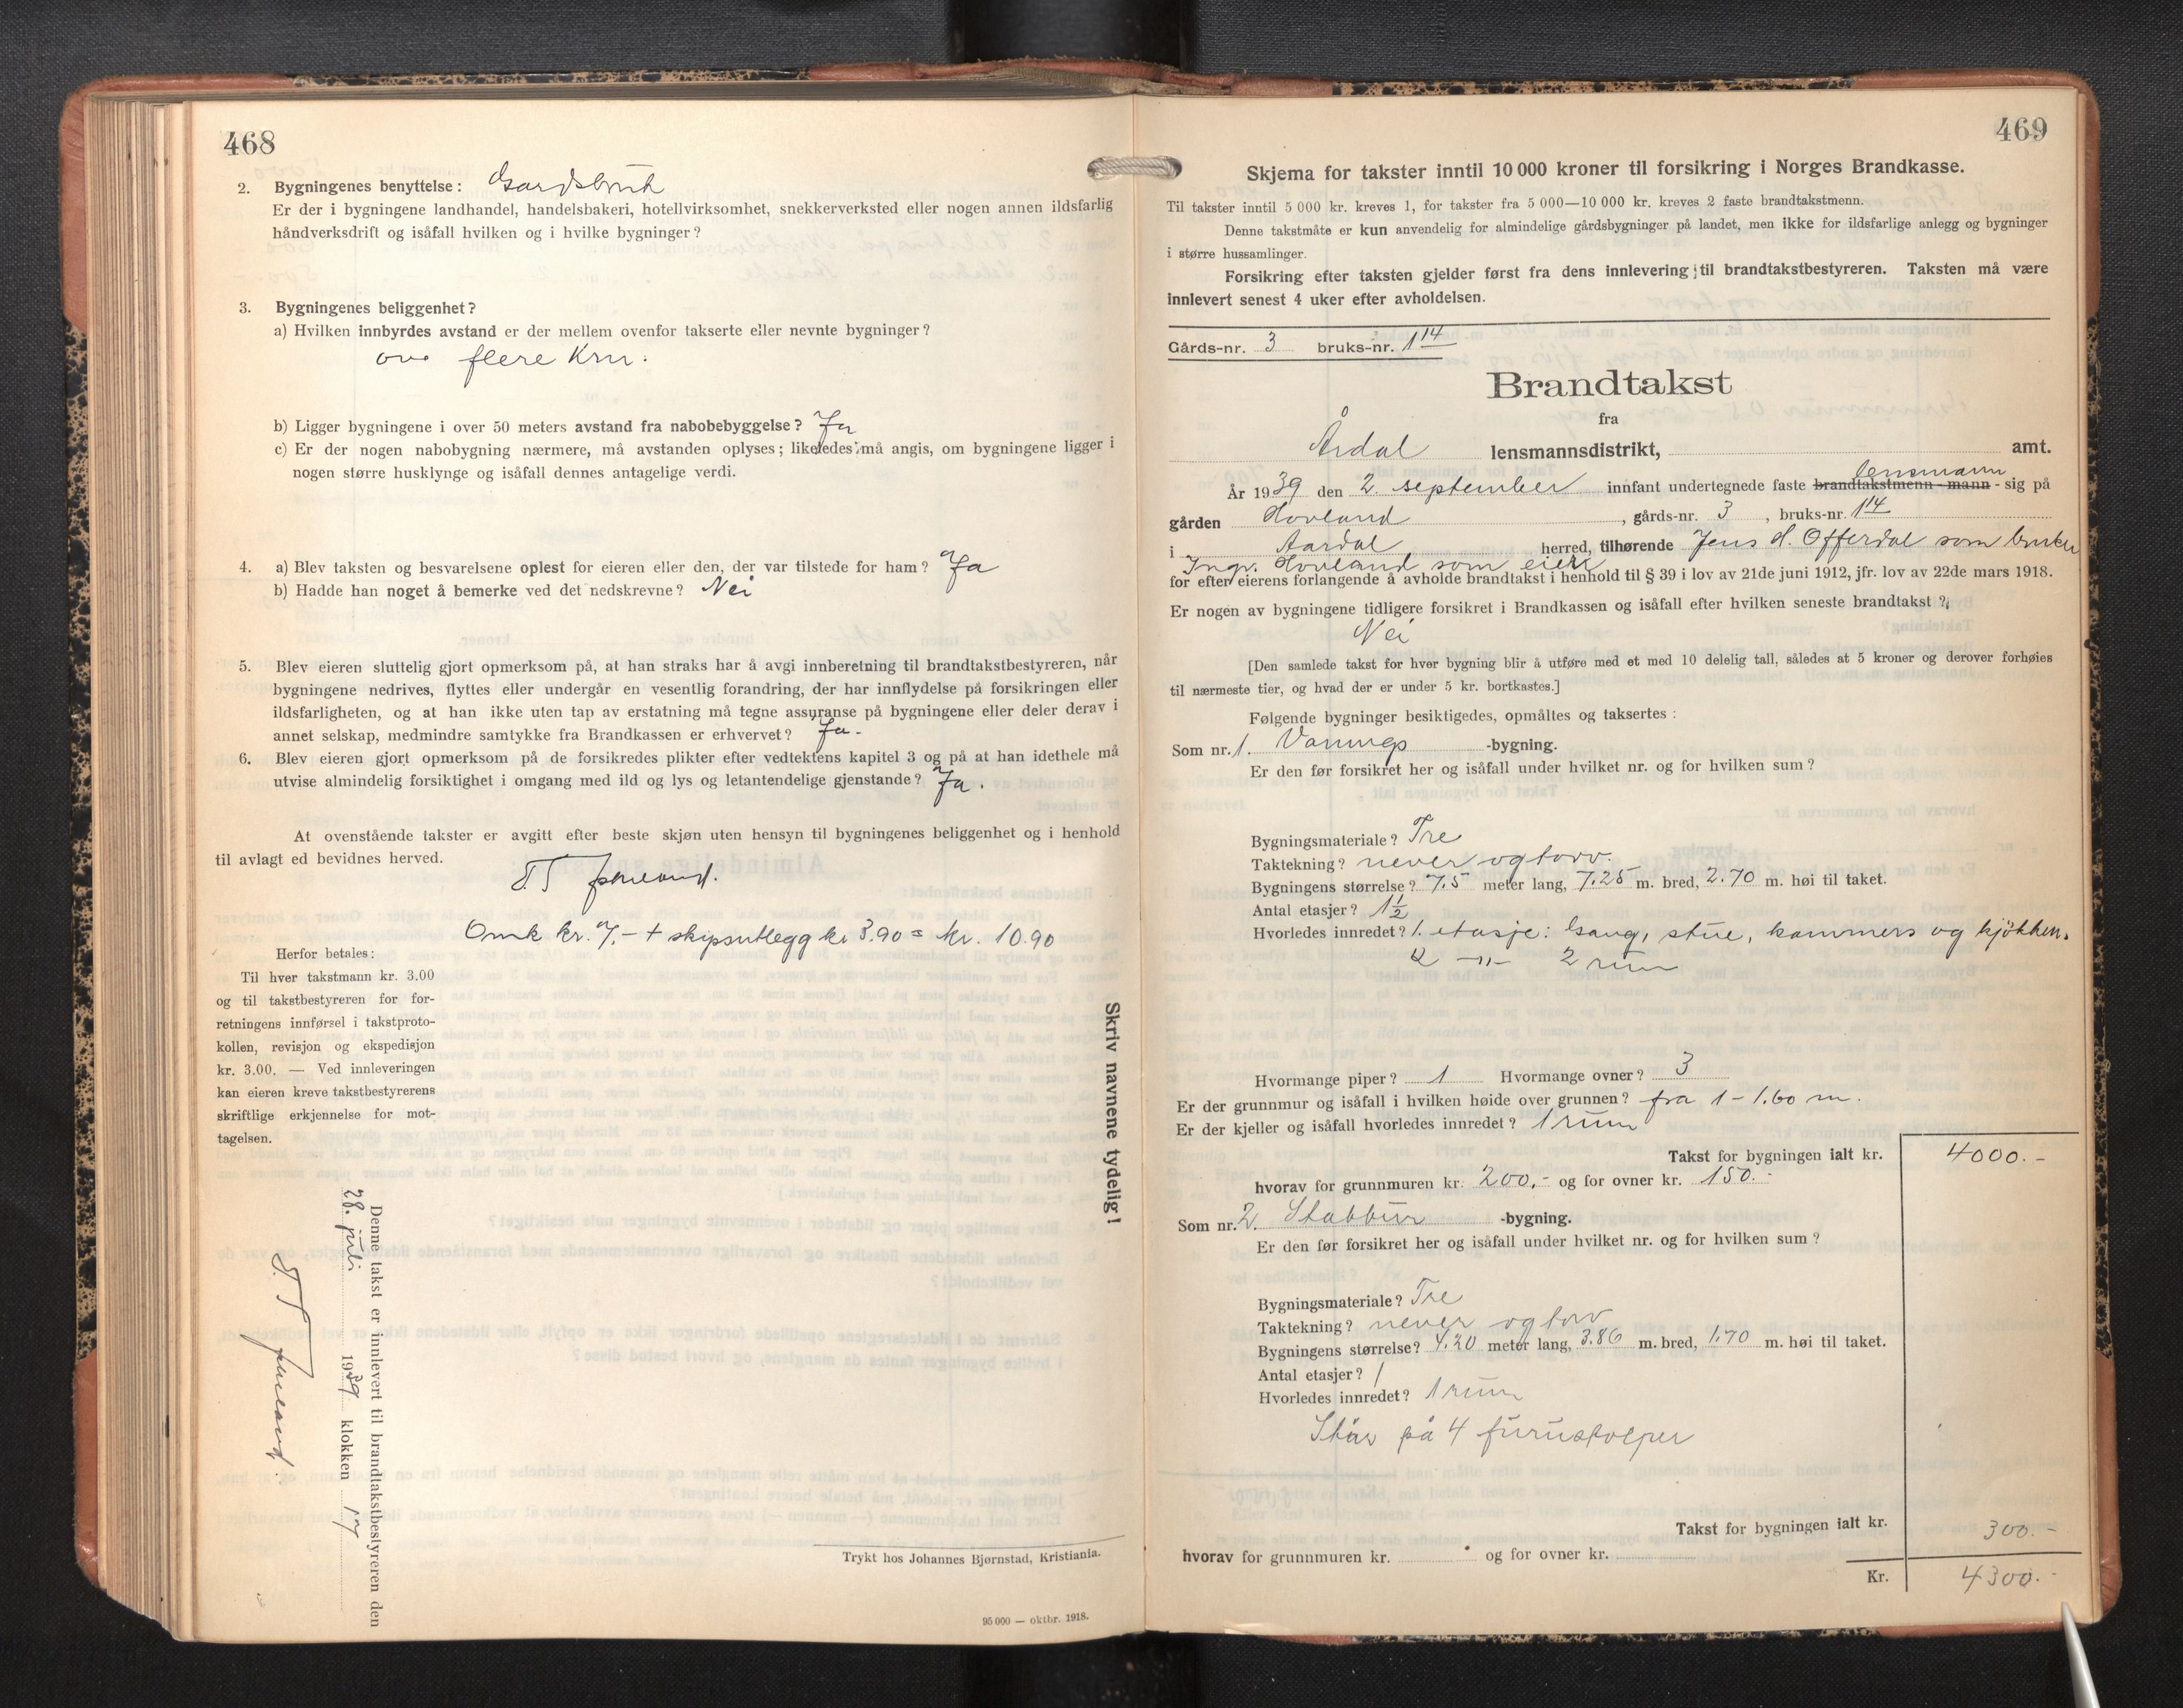 468
2. Bygningenes benyttelse: Gardsbruk
Er der i bygningene landhandel, handelsbakeri, hotellvirksomhet, snekkerverksted eller nogen annen ildsfarlig
håndverksdrift og isåfall hvilken og i hvilke bygninger?
3. Bygningenes beliggenhet?
a) Hvilken innbyrdes avstand er der mellem ovenfor takserte eller nevnte bygninger?
flere Km.
b) Ligger bygningene i over 50 meters avstand fra nabobebyggelse? Ja
c) Er der nogen nabobygning nærmere, må avstanden oplyses; likeledes må angis, om bygningene ligger i
nogen større husklynge og isåfall dennes antagelige verdi.
4. a) Blev taksten og besvarelsene oplest for eieren eller den, der var tilstede for ham? Ja
b) Hadde han noget å bemerke ved det nedskrevne? Nei
5. Blev eieren sluttelig gjort opmerksom på, at han straks har å avgi innberetning til brandtakstbestyreren, når
bygningene nedrives, flyttes eller undergår en vesentlig forandring, der har innflydelse på forsikringen eller
ildsfarligheten, og at han ikke uten tap av erstatning må tegne assuranse på bygningene eller deler derav i
annet selskap, medmindre samtykke fra Brandkassen er erhvervet? Ja.
6. Blev eieren gjort opmerksom på de forsikredes plikter efter vedtektens kapitel 3 og på at han idethele må
utvise almindelig forsiktighet i omgang med ild og lys og letantendelige gjenstande? Ja.
At ovenstående takster er avgitt efter beste skjøn uten hensyn til bygningenes beliggenhet og i henhold
til avlagt ed bevidnes herved.
Omk kr. 7,- + skipsutlegg kr 3.90 = kr. 10.90
Herfor betales:
Til hver takstmann kr. 3.00
og til takstbestyreren for for-
retningens innførsel i takstproto-
kollen, revisjon og ekspedisjon
kr. 3.00. — Ved innleveringen
kan eieren kreve takstbestyrerens
skriftlige erkjennelse for mot-
tagelsen.
Skriv navnene tydelig!
Denne takst er innlevert til brandtakstbestyreren den
28. juli 1939 klokken 17
Trykt hos Johannes Bjørnstad, Kristiania.
95 000 — oktbr. 1918.
469
Skjema for takster inntil 10 000 kroner til forsikring i Norges Brandkasse.
Til takster inntil 5 000 kr. kreves 1, for takster fra 5 000—10 000 kr. kreves 2 faste brandtakstmenn.
Denne takstmåte er kun anvendelig for almindelige gårdsbygninger på landet, men ikke for ildsfarlige anlegg og bygninger
i større hussamlinger.
Forsikring efter taksten gjelder først fra dens innlevering til brandtakstbestyreren. Taksten må være
innlevert senest 4 uker efter avholdelsen.
Gårds-nr. 3 bruks-nr. 1 14
Brandtakst
fra
Årdal lensmannsdistrikt, amt.
lensmann
År 1939 den 2. september innfant undertegnede faste brandtakstmenn - mann - sig på
gården Hovland, gårds-nr. 3, bruks-nr. 1 14
i Aardal herred, tilhørende Jens H. Offerdal som bruker
Ingv. Hovland som eier
for efter eierens forlangende å avholde brandtakst i henhold til § 39 i lov av 21de juni 1912, jfr. lov av 22de mars 1918.
Er nogen av bygningene tidligere forsikret i Brandkassen og isåfall efter hvilken seneste brandtakst?
Nei
[Den samlede takst for hver bygning blir å utføre med et med 10 delelig tall, således at 5 kroner og derover forhøies
til nærmeste tier, og hvad der er under 5 kr. bortkastes.]
Følgende bygninger besiktigedes, opmåltes og taksertes:
Som nr. 1. Vånings -bygning.
Er den før forsikret her og isåfall under hvilket nr. og for hvilken sum?
Bygningsmateriale? Tre
Taktekning? never og torv.
Bygningens størrelse? 7.5 meter lang, 7.25 m. bred, 2.70 m. høi til taket.
Antal etasjer? 1 1/2
Hvorledes innredet? 1. etasje: Gang, stue, kammers og kjøkken.
2 —"— 2 rum
Hvormange piper? 1 Hvormange ovner? 3
Er der grunnmur og isåfall i hvilken høide over grunnen? fra 1 - 1.60 m.
Er der kjeller og isåfall hvorledes innredet? 1 rum
Takst for bygningen ialt kr. 4000.-
hvorav for grunnmuren kr. 200,- og for ovner kr. 150.-
Som nr. 2. Stabbur -bygning.
Er den før forsikret her og isåfall under hvilket nr. og for hvilken sum?
Bygningsmateriale? Tre
Taktekning? never og torv
Bygningens størrelse? 4.20 meter lang, 3.86 m. bred, 1.70 m. høi til taket.
Antal etasjer? 1
Hvorledes innredet? 1 rum
Står på 4 furustolper
Takst for bygningen ialt kr. 300.-
hvorav for grunnmuren kr. og for ovner kr.
Kr. 4300.-